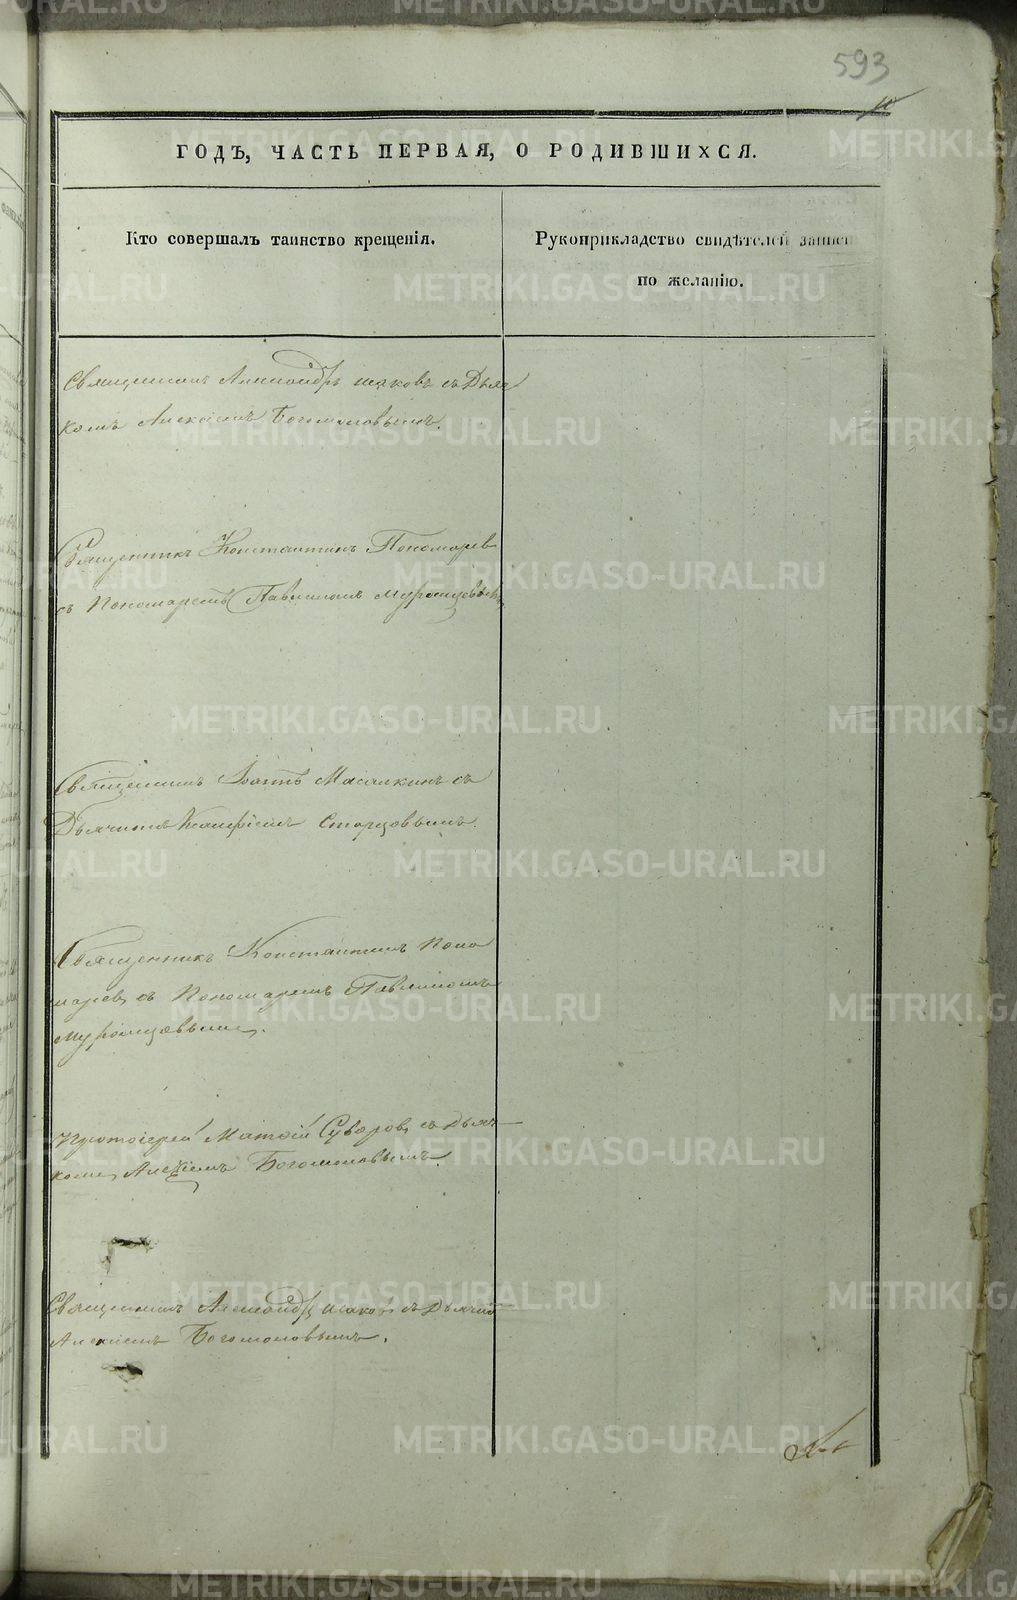 593
ГОДЪ, ЧАСТЬ ПЕРВАЯ, О РОДИВШИХСЯ.
Кто совершалъ таинство крещенія.
Рукоприкладство свидѣтелей записи
по желанію.
Священникъ Александръ с Дьяч
комъ Алексіемъ Богомоловымъ.
Священникъ Константинъ Пономарев
съ Пономаремъ Павлиномъ Муромцовымъ
Священникъ Іоаннъ Масалкинъ съ
Дьячкомъ Старцовымъ.
Священникъ Константинъ Поно
марев, съ Пономаремъ Павлиномъ
Муромцовымъ.
Протоіерей Матѳій Суворов, съ Дьяч
комъ Алексіемъ Богомоловымъ.
Священникъ Александръ съ Дьячком
Алексіемъ Богомоловымъ.
METRIKI.GASO-URAL.RU